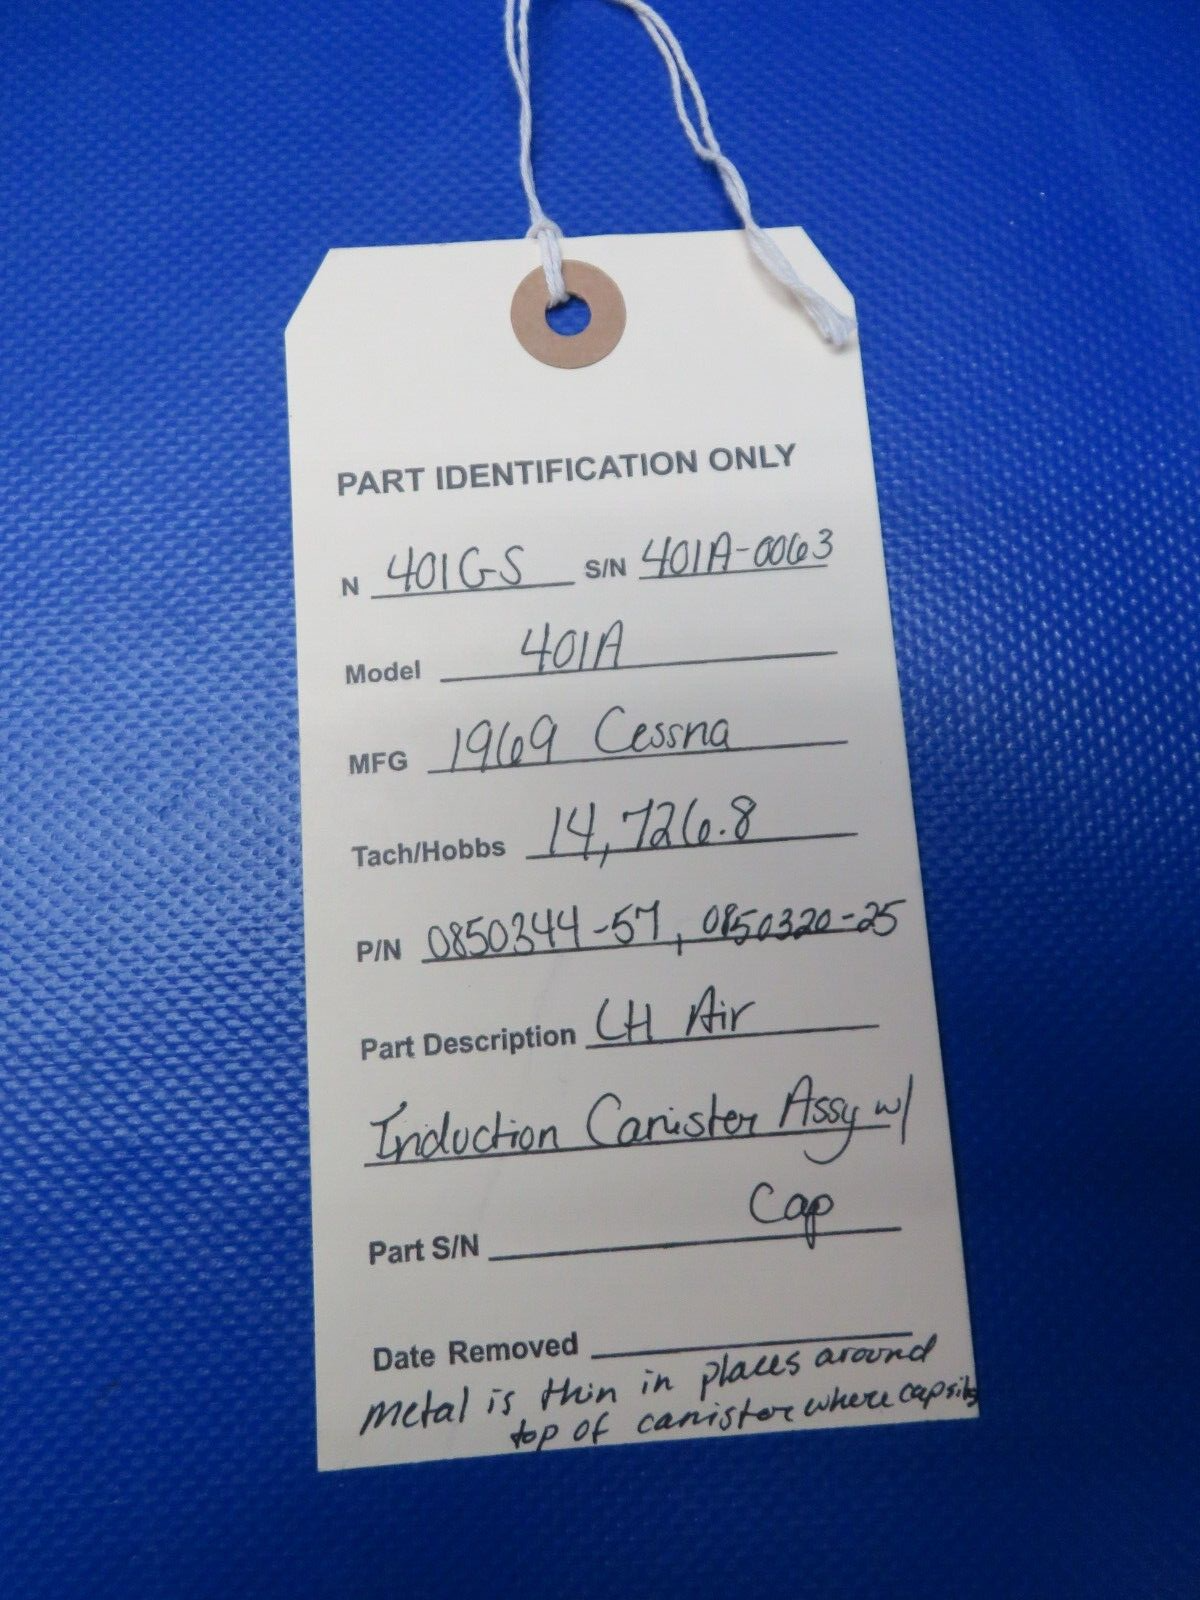 PART IDENTIFICATION ONLY
N 401GS S/N 401A-0063
Model 401A
MFG 1969 Cessna
Tach/Hobbs 14,726.8
P/N 0850344-57, 0850320-25
Part Description LH Air
Induction Canister Assy w/
Cap
Part S/N
Date Removed
Metal is thin in places around
top of canister where cap sits